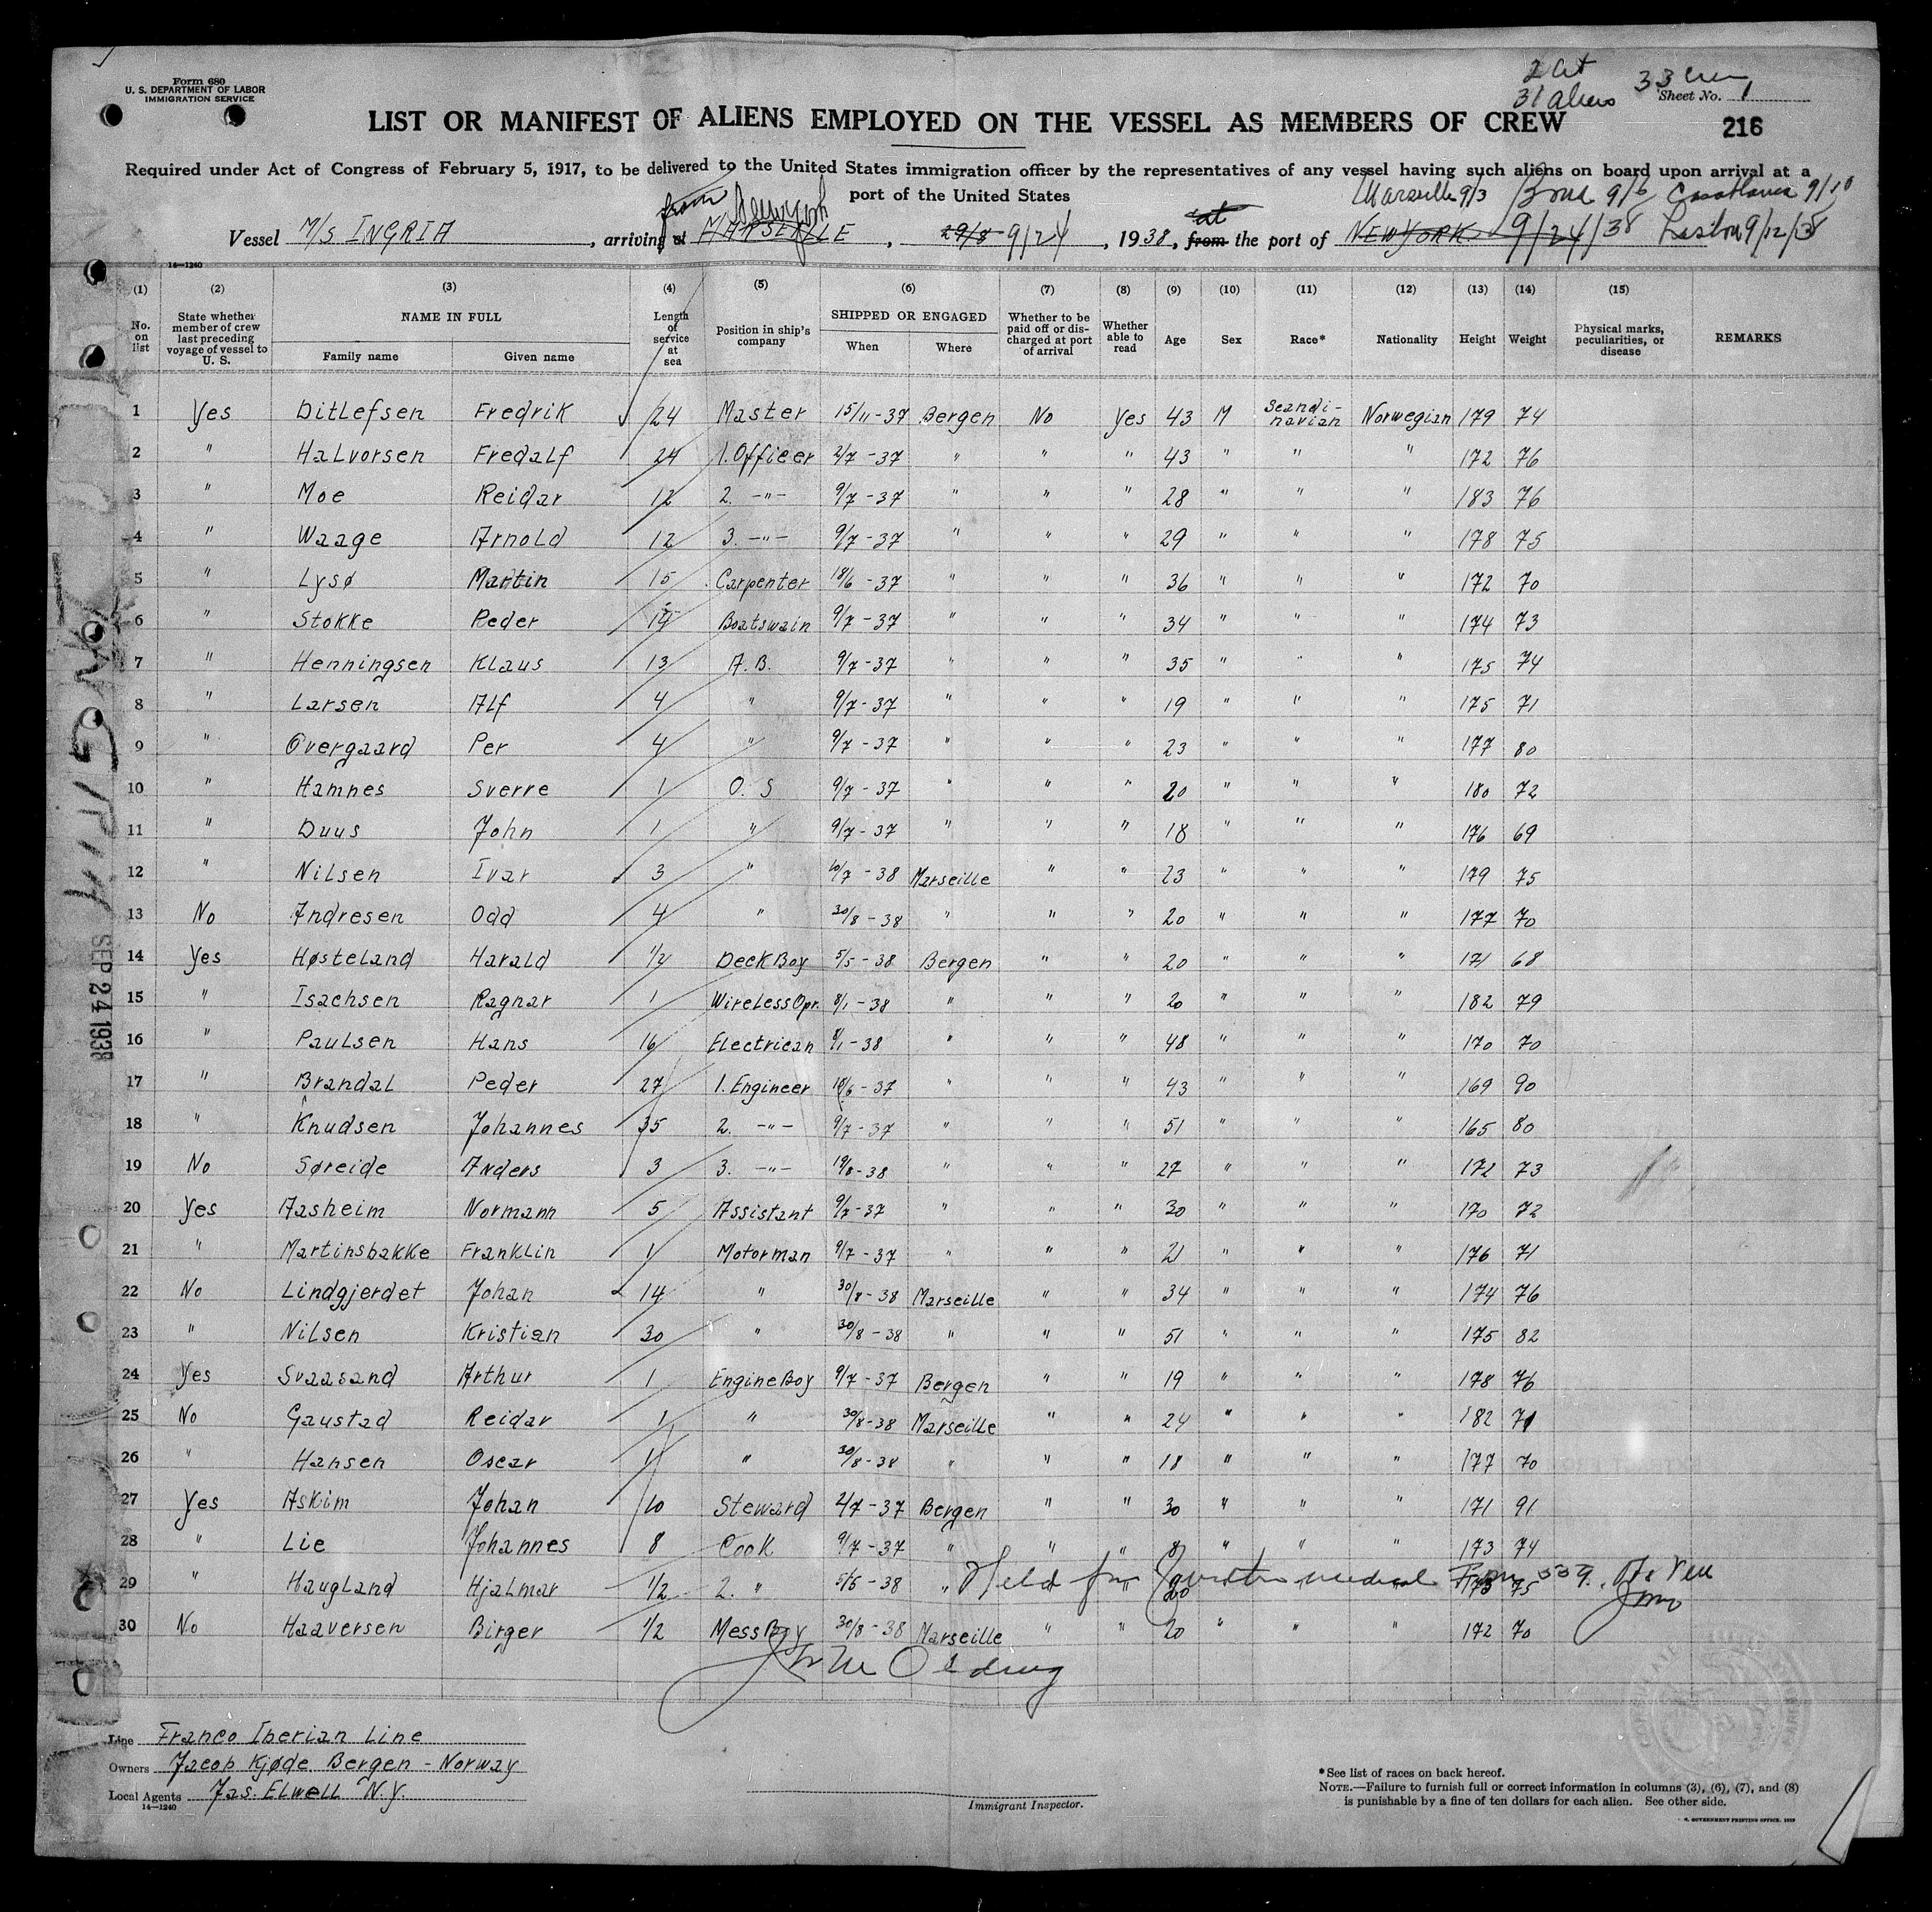 Form 680
U. S. DEPARTMENT OF LABOR
IMMIGRATION SERVICE
31 Aliens 33 Crew
Sheet No. 1
LIST OR MANIFEST OF ALIENS EMPLOYED ON THE VESSEL AS MEMBERS OF CREW
216
Required under Act of Congress of February 5, 1917, to be delivered to the United States immigration officer by the representatives of any vessel having such aliens on board upon arrival at a
port of the United States
Marseille 9/3 Bona 9/6 Casablanca 9/10
from New York at
Vessel M/S INGRIA, arriving at MARSEILLE, 29/8 9/24, 1938, from the port of NEW YORK 9/24/38 Lisbon 9/12/38
14—1240
(1) (2) (3) (4) (5) (6) (7) (8) (9) (10) (11) (12) (13) (14) (15)
No. on list State whether member of crew last preceding voyage of vessel to U. S. NAME IN FULL Family name Given name Length of service at sea Position in ship's company SHIPPED OR ENGAGED When Where Whether to be paid off or discharged at port of arrival Whether able to read Age Sex Race* Nationality Height Weight Physical marks, peculiarities, or disease REMARKS
1 Yes Ditlefsen Fredrik 24 Master 15/11-37 Bergen No Yes 43 M Scandinavian Norwegian 179 74
2 " Halvorsen Fredalf 24 1. Officer 2/7-37 " " " 43 " " " 172 76
3 " Moe Reidar 12 2. -"- 9/7-37 " " " 28 " " " 183 76
4 " Waage Arnold 12 3. -"- 9/7-37 " " " 29 " " " 178 75
5 " Lysø Martin 15 Carpenter 18/6-37 " " " 36 " " " 172 70
6 " Stokke Peder Boatswain 9/7-37 " " " 34 " " " 174 73
7 " Henningsen Klaus 13 A.B. 9/7-37 " " " 35 " " " 175 74
8 " Larsen Alf 4 " 9/7-37 " " " 19 " " " 175 71
9 " Overgaard Per 4 " 9/7-37 " " " 23 " " " 177 80
10 " Hamnes Sverre 1 O. S 9/7-37 " " " 20 " " " 180 72
11 " Duus John 1 " 9/7-37 " " " 18 " " " 176 69
12 " Nilsen Ivar 3 " 10/7-38 Marseille " " 23 " " " 179 75
13 No Andresen Odd 4 " 30/8-38 " " " 20 " " " 177 70
14 Yes Høsteland Harald 1/2 Deck Boy 5/5-38 Bergen " " 20 " " " 171 68
15 " Isachsen Ragnar 1 Wireless Opr. 8/1-38 " " " 20 " " " 182 79
16 " Paulsen Hans 16 Electrican 8/1-38 " " " 48 " " " 170 70
17 " Brandal Peder 27 1. Engineer 18/6-37 " " " 43 " " " 169 90
18 " Knudsen Johannes 35 2. -"- 9/7-37 " " " 51 " " " 165 80
19 No Søreide Anders 3 3. -"- 19/8-38 " " " 27 " " " 172 73
20 Yes Aasheim Normann 5 Assistant 9/7-37 " " " 30 " " " 170 72
21 " Martinsbakke Franklin 1 Motorman 9/7-37 " " " 21 " " " 176 71
22 No Lindgjerdet Johan 14 " 30/8-38 Marseille " " 34 " " " 174 76
23 " Nilsen Kristian 30 " 30/8-38 " " " 51 " " " 175 82
24 Yes Svaasand Arthur 1 Engine Boy 9/7-37 Bergen " " 19 " " " 178 76
25 No Gaustad Reidar 1 " 30/8-38 Marseille " " 24 " " " 182 71
26 " Hansen Oscar 1 " 30/8-38 " " " 18 " " " 177 70
27 Yes Askim Johan 10 Steward 2/7-37 Bergen " " 30 " " " 171 91
28 " Lie Johannes 8 Cook 9/7-37 " " " " " " 173 74
29 " Haugland Hjalmar 1/2 2. " 5/5-38 " Held for further medical Form 20 75
30 No Haaversen Birger 1/2 Mess Boy 30/8-38 Marseille " " 20 " " " 172 70
SEP 24 1938
Line Franco Iberian Line
Owners Jacob Kjøde Bergen - Norway
Local Agents Jas. Elwell N.Y.
14—1240
Immigrant Inspector.
*See list of races on back hereof.
NOTE.—Failure to furnish full or correct information in columns (3), (6), (7), and (8)
is punishable by a fine of ten dollars for each alien. See other side.